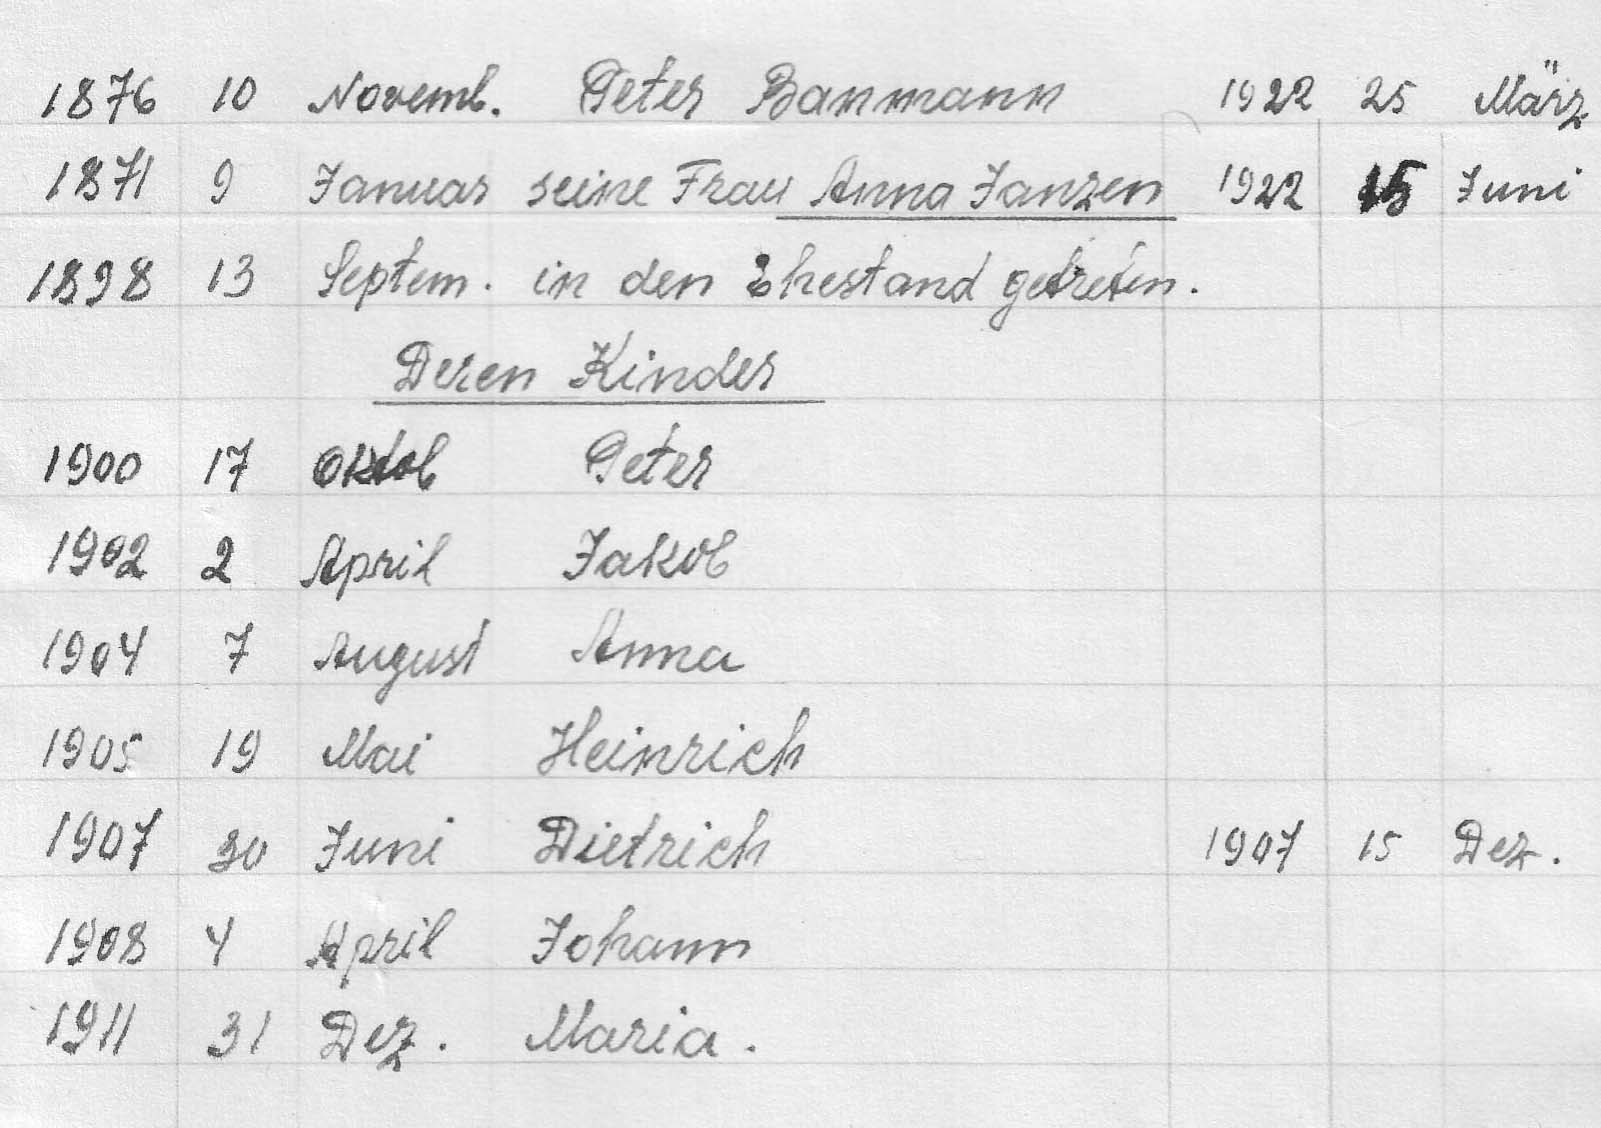 1876 10 Novemb. Peter Banmann 1922 25 März
1871 9 Januar seine Frau Anna Janzen 1922 15 Juni
1898 13 Septem. in den Ehestand getreten.
Deren Kinder
1900 17 Oktob Peter
1902 2 April Jakob
1904 7 August Anna
1905 19 Mai Heinrich
1907 30 Juni Dietrich 1907 15 Dez.
1908 4 April Johann
1911 31 Dez. Maria.